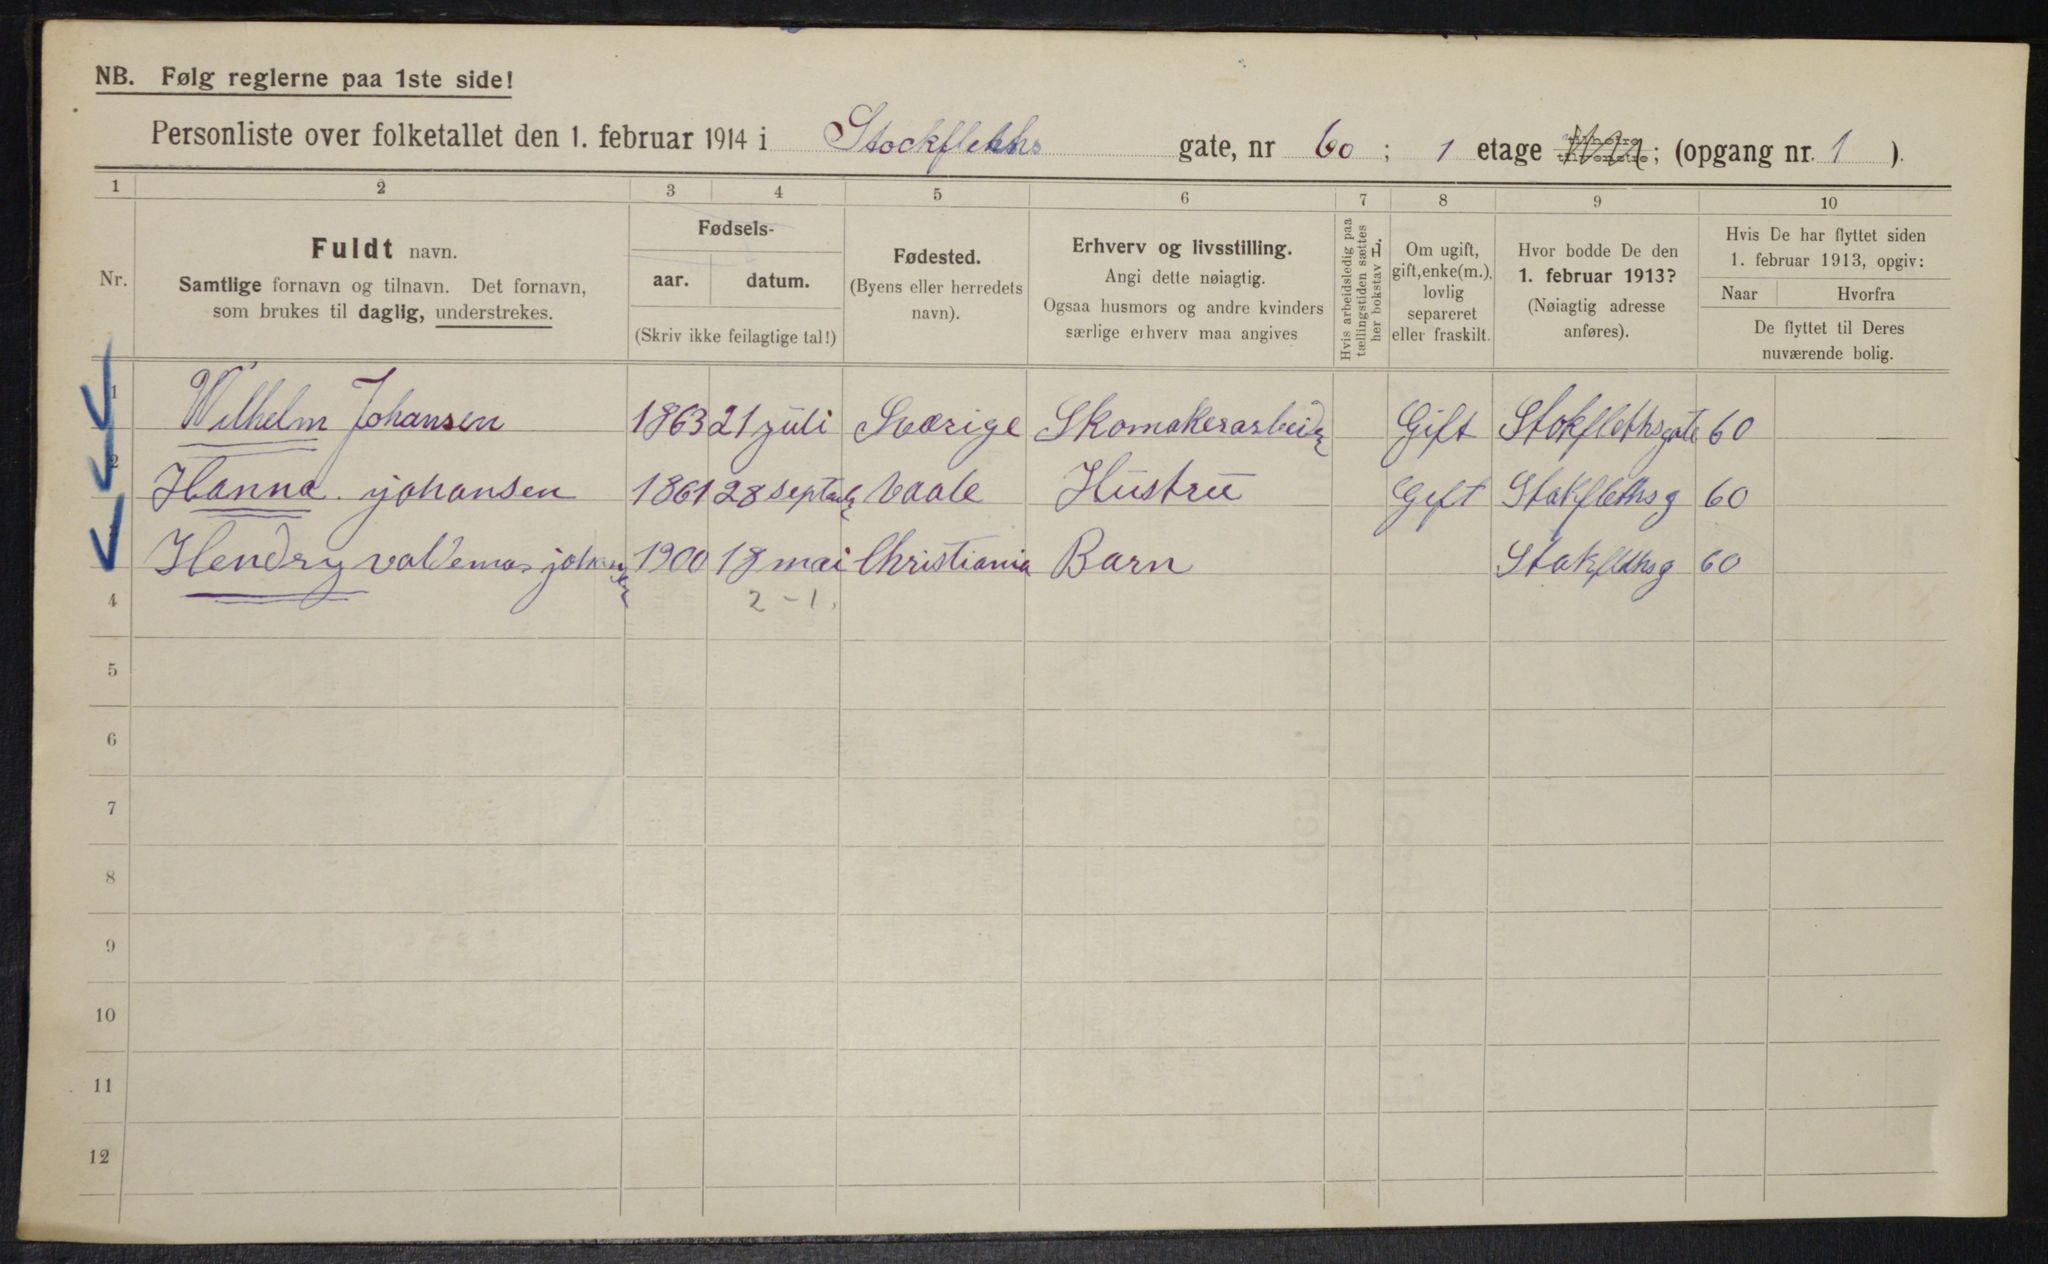 NB. Følg reglerne paa 1ste side!
Personliste over folketallet den 1. februar 1914 i Stockfleths gate, nr 60 ; 1 etage ; (opgang nr. 1 ).
1 2 3 4 5 6 7 8 9 10
Nr.
Fuldt navn.
Samtlige fornavn og tilnavn. Det fornavn,
som brukes til daglig, understrekes.
Fødsels-
aar. datum.
(Skriv ikke feilagtige tal!)
Fødested.
(Byens eller herredets
navn).
Erhverv og livsstilling.
Angi dette nøiagtig.
Ogsaa husmors og andre kvinders
særlige erhverv maa angives
Hvis arbeidsledig paa
tællingstiden sættes
her bokstav L.
Om ugift,
gift, enke(m.),
lovlig
separeret
eller fraskilt.
Hvor bodde De den
1. februar 1913?
(Nøiagtig adresse
anføres).
Hvis De har flyttet siden
1. februar 1913, opgiv:
Naar Hvorfra
De flyttet til Deres
nuværende bolig.
1 Wilhelm Johansen 1863 21 juli Sværige Skomakerarbeider Gift Stokflethsgate 60
2 Hanna johansen 1861 28 septemb Vaale Hustru Gift Stokflethsg 60
Hendry valdemar johansen 1900 18 mai Christiania Barn Stokflethsg 60
4 2-1.
5
6
7
8
9
10
11
12